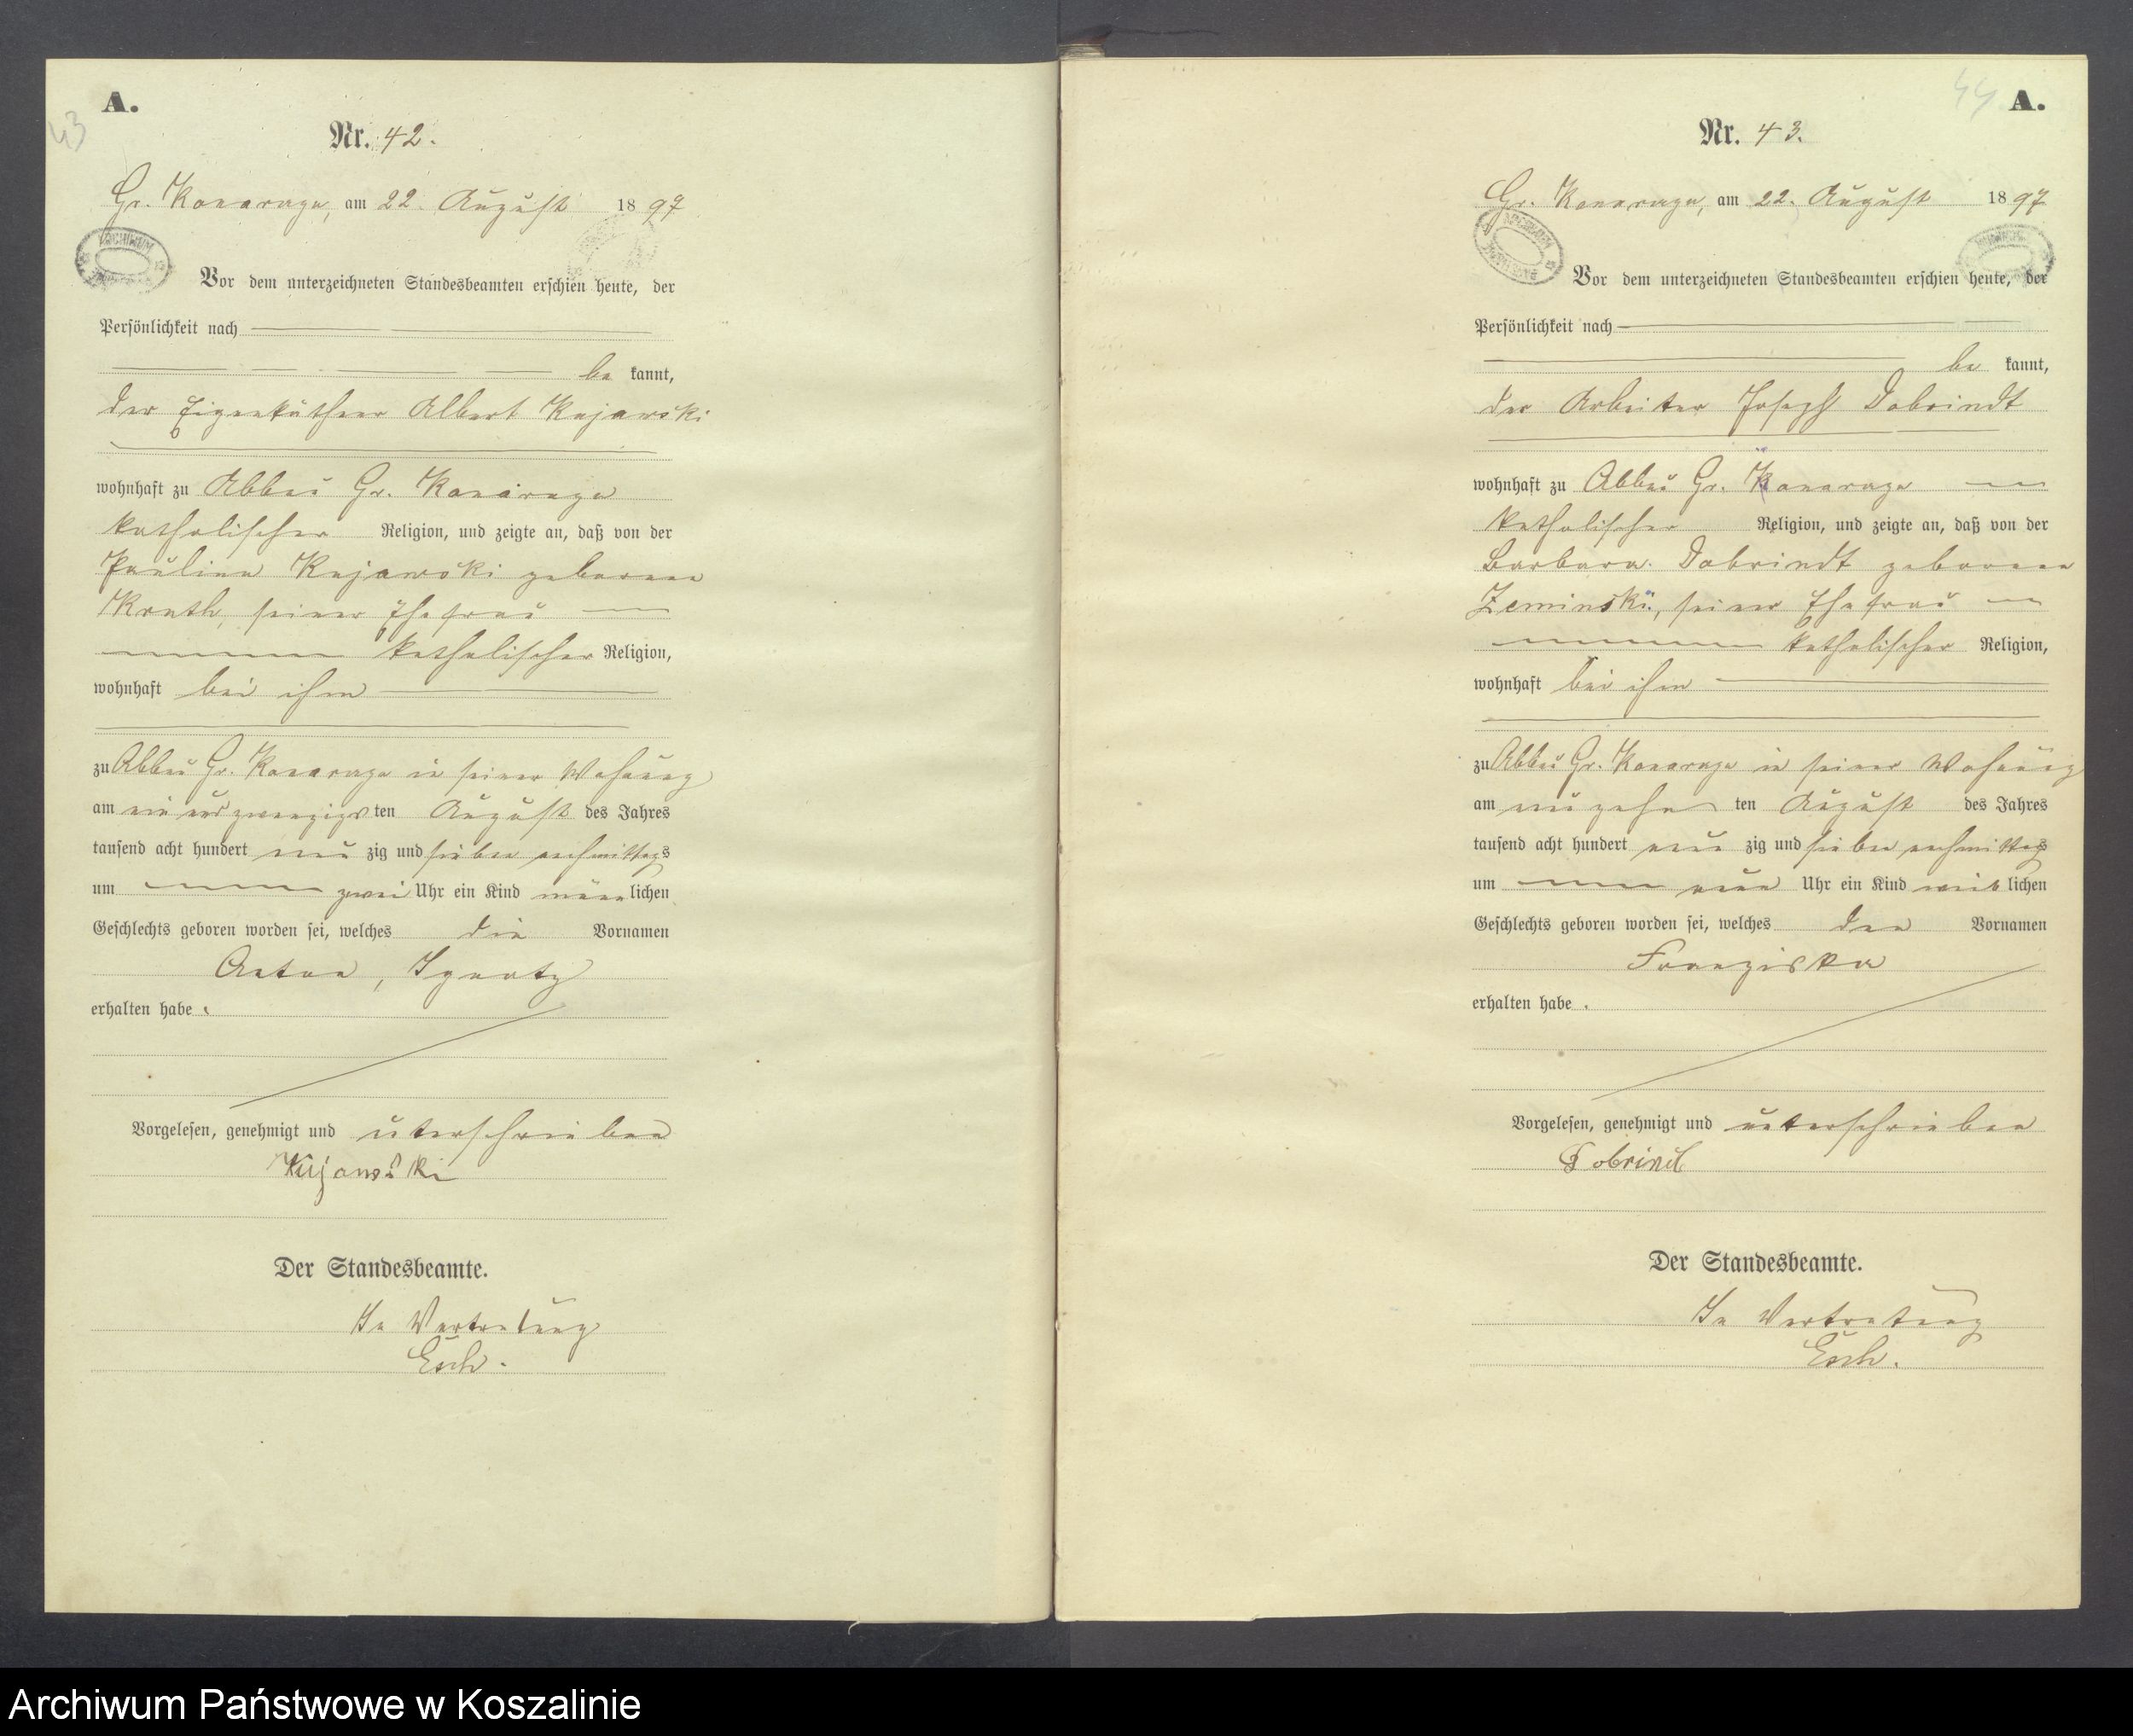 A.
43
Nr. 42.
Gr. Konarczyn, am 22. August 1897
Vor dem unterzeichneten Standesbeamten erschien heute, der
Persönlichkeit nach
be kannt,
der Eigenkäthner Albert Kujawski
wohnhaft zu Abbau Gr. Konarczyn
katholischer Religion, und zeigte an, daß von der
Paulina Kujawski geborene
seiner Ehefrau
katholischer Religion,
wohnhaft bei ihm
zu Abbau Gr. Konarczyn in seiner Wohnung
am ein und zwanzigsten August des Jahres
tausend acht hundert neun zig und sieben nachmittags
um zwei Uhr ein Kind männlichen
Geschlechts geboren worden sei, welches die Vornamen
Anton, Ignatz
erhalten habe.
Vorgelesen, genehmigt und unterschrieben
Kujawski
Der Standesbeamte.
In Vertretung
Esch.
44
A.
Nr. 43.
Gr. Konarczyn, am 22. August 1897
Vor dem unterzeichneten Standesbeamten erschien heute, der
Persönlichkeit nach
be kannt,
der Arbeiter Joseph Dobrindt
wohnhaft zu Abbau Gr. Konarczyn
katholischer Religion, und zeigte an, daß von der
Barbara Dobrindt geborene
Zeminski, seiner Ehefrau
katholischer Religion,
wohnhaft bei ihm
zu Abbau Gr. Konarczyn in seiner Wohnung
am neunzehn ten August des Jahres
tausend acht hundert neun zig und sieben nachmittags
um neun Uhr ein Kind weiblichen
Geschlechts geboren worden sei, welches den Vornamen
Franziska
erhalten habe.
Vorgelesen, genehmigt und unterschrieben
Dobrind
Der Standesbeamte.
In Vertretung
Esch.
Archiwum Państwowe w Koszalinie